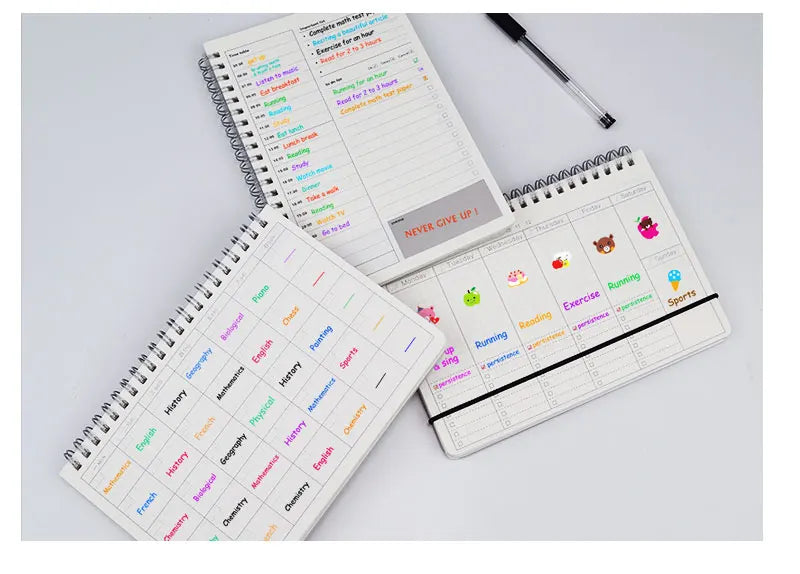 Time table
Important list
Complete math test paper
Reciting a beautiful article
Exercise for an hour
Read for 2 to 3 hours
Get up
Listen to music
Eat breakfast
Running
Reading
Study
Eat lunch
Lunch break
Reading
Study
Watch movie
Dinner
Take a walk
Reading
Watch TV
Go to bed
Running for an hour
Read for 2 to 3 hours
Complete math test paper
NEVER GIVE UP !
Monday
Tuesday
Wednesday
Thursday
Friday
Saturday
Sunday
11 12
up
& sing
Running
Reading
Exercise
Running
Sports
persistence
persistence
persistence
persistence
persistence
Mathematics
English
History
Geography
Biological
Piano
French
History
French
Mathematics
English
Chess
Chemistry
Biological
Geography
Physical
History
Painting
Chemistry
Mathematics
History
Mathematics
Sports
Chemistry
English
Chemistry